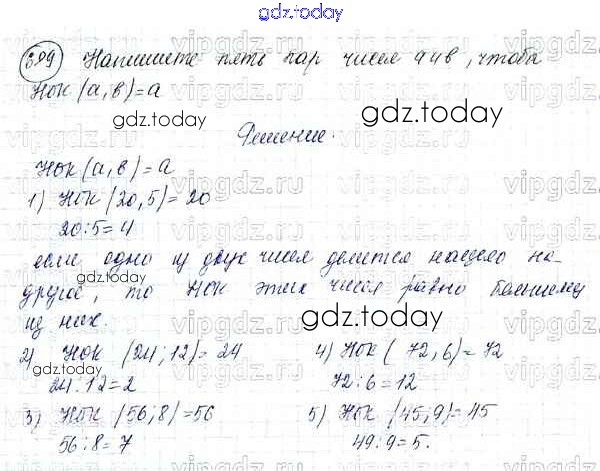 gdz.today
609 Напишите пять пар чисел a и в, чтобы
НОК (a, в) = a
gdz.today
gdz.today
Решение.
НОК (a, в) = a
1) НОК (20, 5) = 20
20:5=4
если одно из двух чисел делится нацело на
gdz.today
другое, то НОК этих чисел равно большему
из них.
gdz.today
2) НОК (24; 12) = 24
4) НОК (72, 6) = 72
gdz.today
24:12=2
72:6=12
3) НОК (56; 8) = 56
5) НОК (45, 9) = 45
56:8=7
49:9=5.
gdz.today